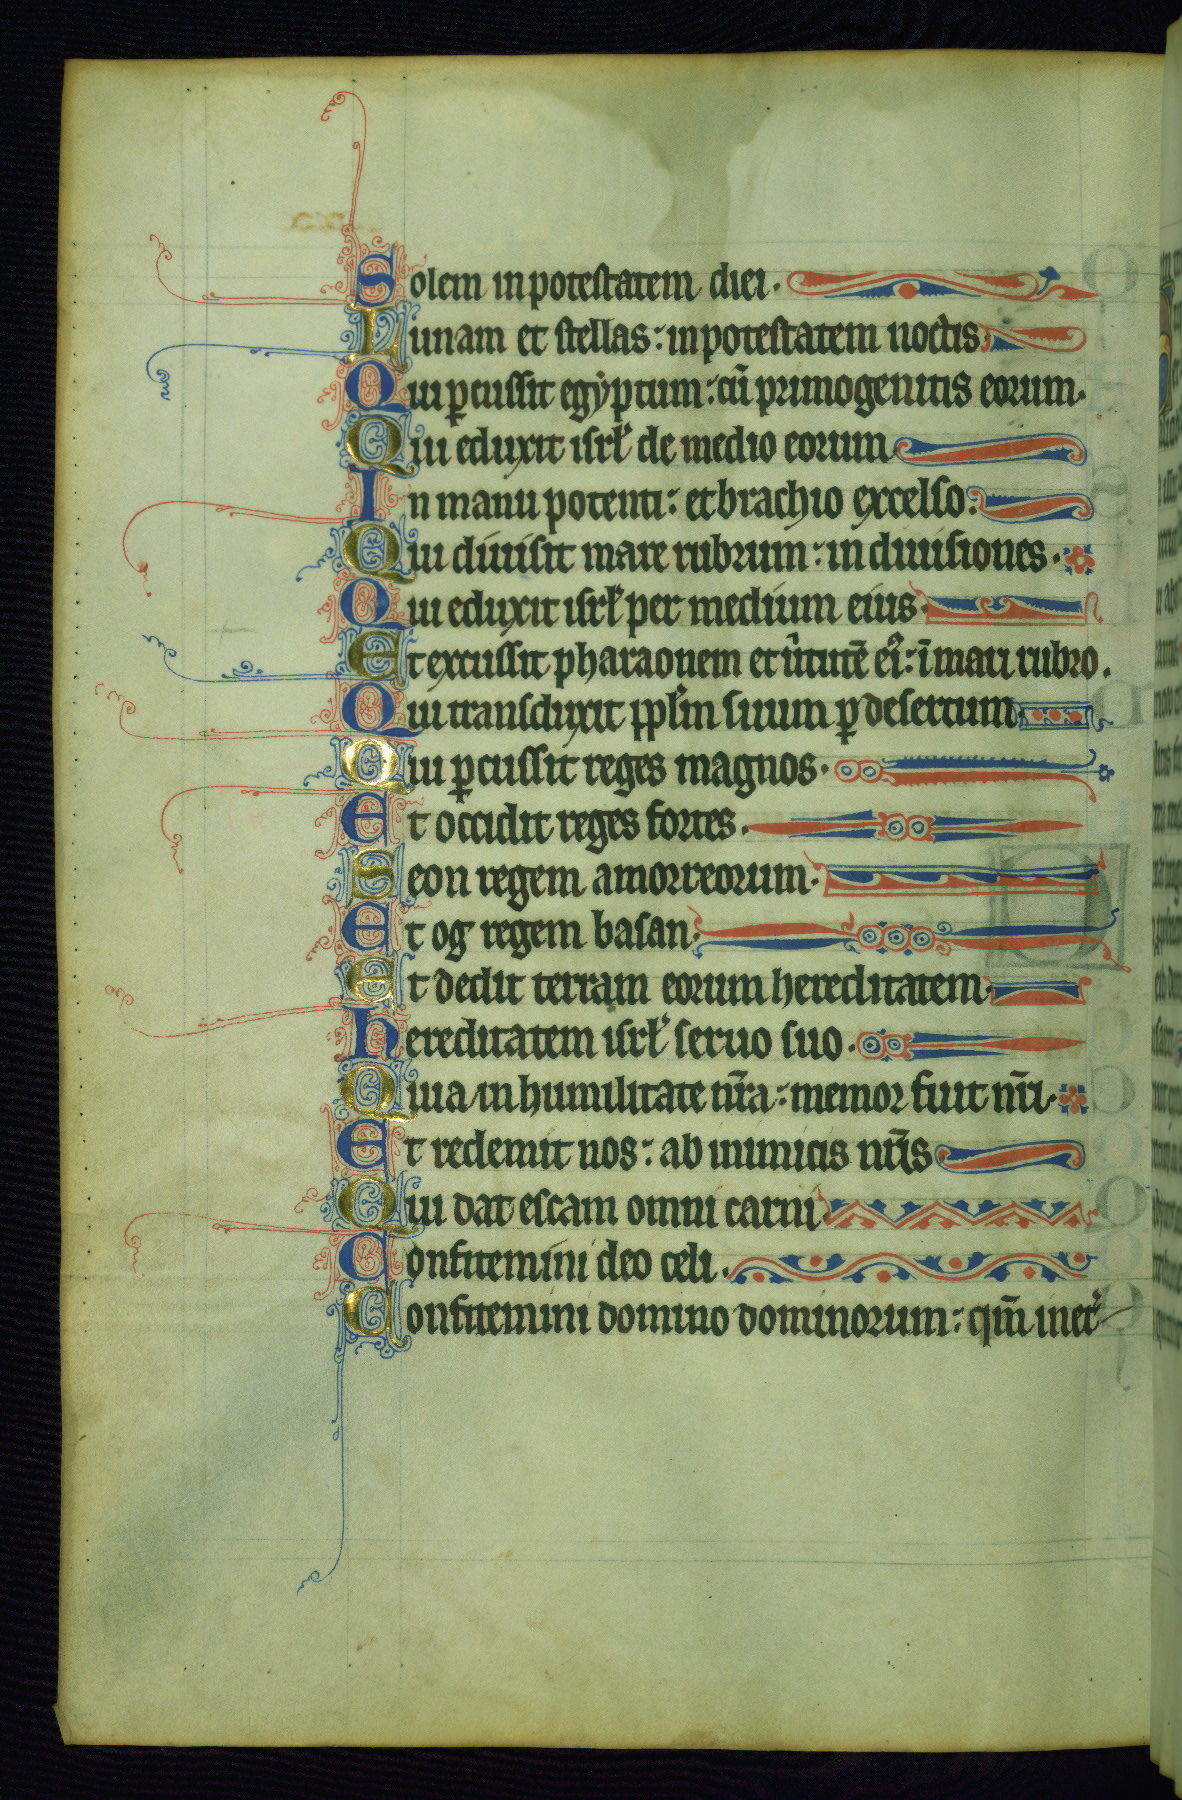 Solem in potestatem diei.
Lunam et stellas: in potestatem noctis
Qui pcussit egyptum: cū primogenitis eorum.
Qui eduxit isrl̓ de medio eorum
In manu potenti: et brachio excelso:
Qui diuisit mare rubrum: in diuisiones.
Qui eduxit isrl̓ per medium eius.
Et excussit pharaonem et ũtutē ei᷒: ī mari rubro.
Qui transduxit ppl̓m suum ꝑ desertum.
Qui ꝑcussit reges magnos.
Et occidit reges fortes.
Seon regem amorreorum.
Et og regem basan.
Et dedit terram eorum hereditatem.
hereditatem isrl̓ seruo suo.
Quia in humilitate nr̄a: memor fuit nr̄i.
Et redemit nos: ab inimicis nr̄is
Qui dat escam omni carni
Confitemini deo celi.
Confitemini domino dominorum: qm̄ in et̓